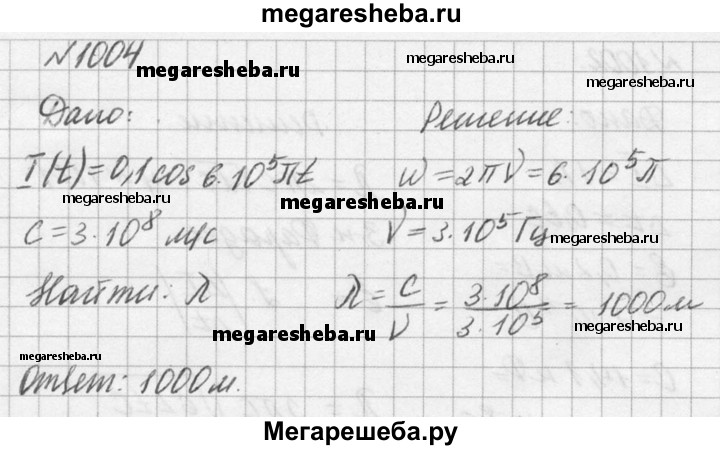 megaresheba.ru
N1004
megaresheba.ru
megaresheba.ru
Дано:
Решение:
I(t)=0,1cos6·10⁵πt
ω=2πν=6·10⁵π
megaresheba.ru
megaresheba.ru
c=3·10⁸ м/с
ν=3·10⁵Гц
megaresheba.ru
Найти: λ
λ=c/ν=3·10⁸/3·10⁵=1000м
megaresheba.ru
megaresheba.ru
megaresheba.ru
Ответ: 1000м.
Мегарешеба.ру